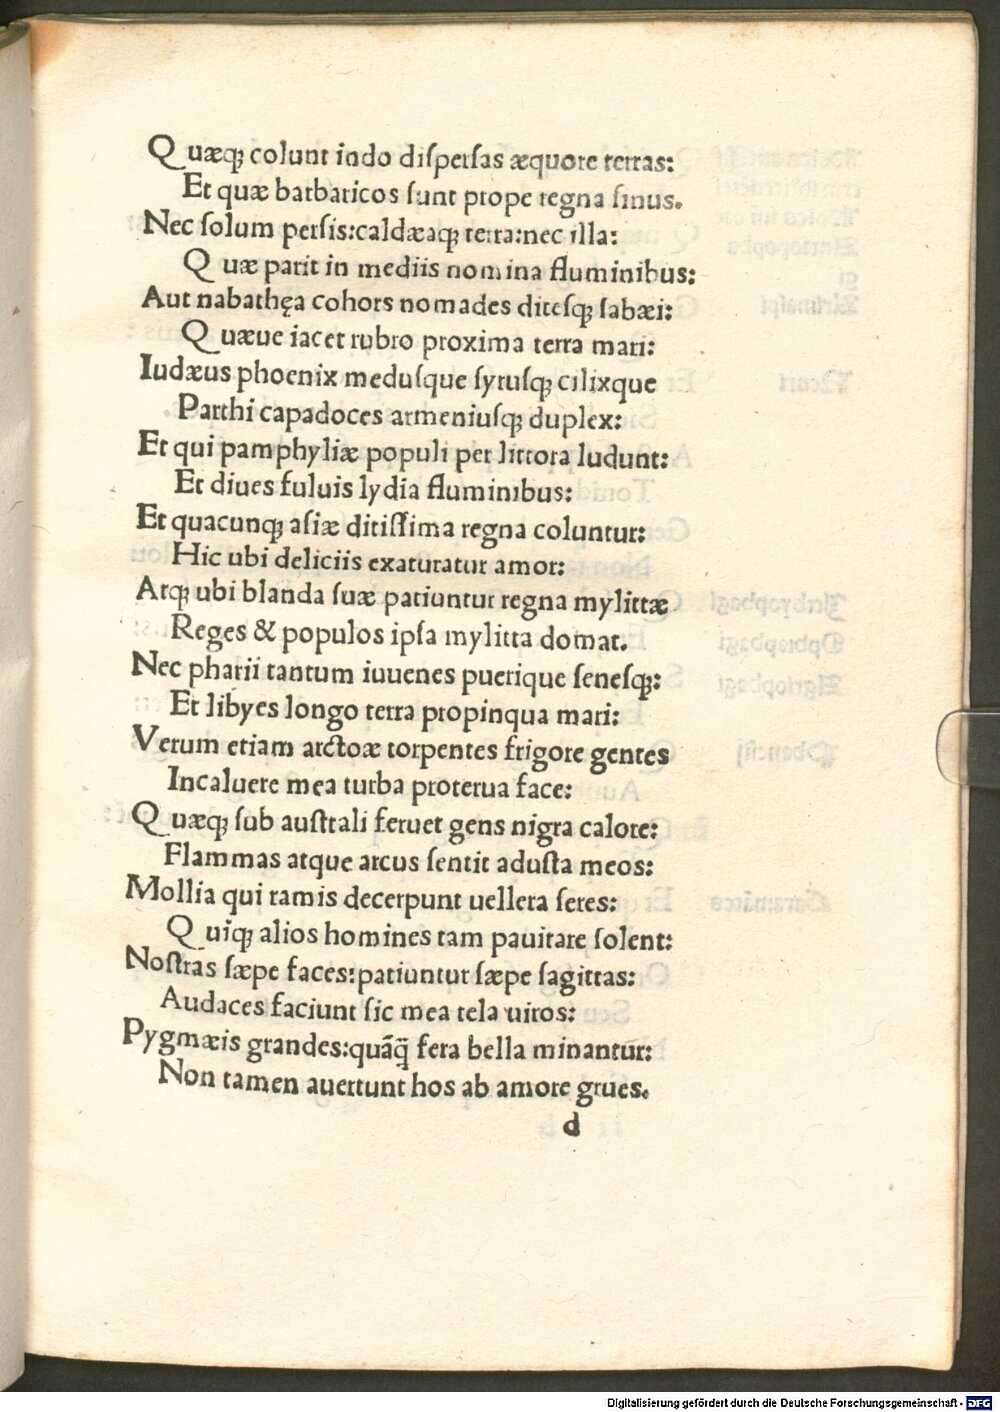 Quæqꝫ colunt indo diſperſas æquore terras:
Et quæ barbaricos ſunt prope regna ſinus.
Nec ſolum perſis:caldæaqꝫ terra:nec illa:
Quæ parit in mediis nomina fluminibus:
Aut nabathęa cohors nomades diteſqꝫ ſabæi:
Quæue iacet rubro proxima terra mari:
Iudæus phoenix meduſque ſyruſqꝫ cilixque
Parthi capadoces armeniuſqꝫ duplex:
Et qui pamphyliæ populi per littora ludunt:
Et diues fuluis lydia fluminibus:
Et quacunqꝫ aſiæ ditiſſima regna coluntur:
Hic ubi deliciis exaturatur amor:
Atqꝫ ubi blanda ſuæ patiuntur regna mylittæ
Reges & populos ipſa mylitta domat.
Nec pharii tantum iuuenes puerique ſeneſqꝫ:
Et libyes longo terra propinqua mari:
Verum etiam arctoæ torpentes frigore gentes
Incaluere mea turba proterua face:
Quæqꝫ ſub auſtrali feruet gens nigra calore:
Flammas atque arcus ſentit aduſta meos:
Mollia qui ramis decerpunt uellera ſeres:
Quiqꝫ alios homines tam pauitare ſolent:
Noſtras ſæpe faces:patiuntur ſæpe ſagittas:
Audaces faciunt ſic mea tela uiros:
Pygmæis grandes:quãq̃ fera bella minantur:
Non tamen auertunt hos ab amore grues.
d
Digitalisierung gefördert durch die Deutsche Forschungsgemeinschaft - DFG